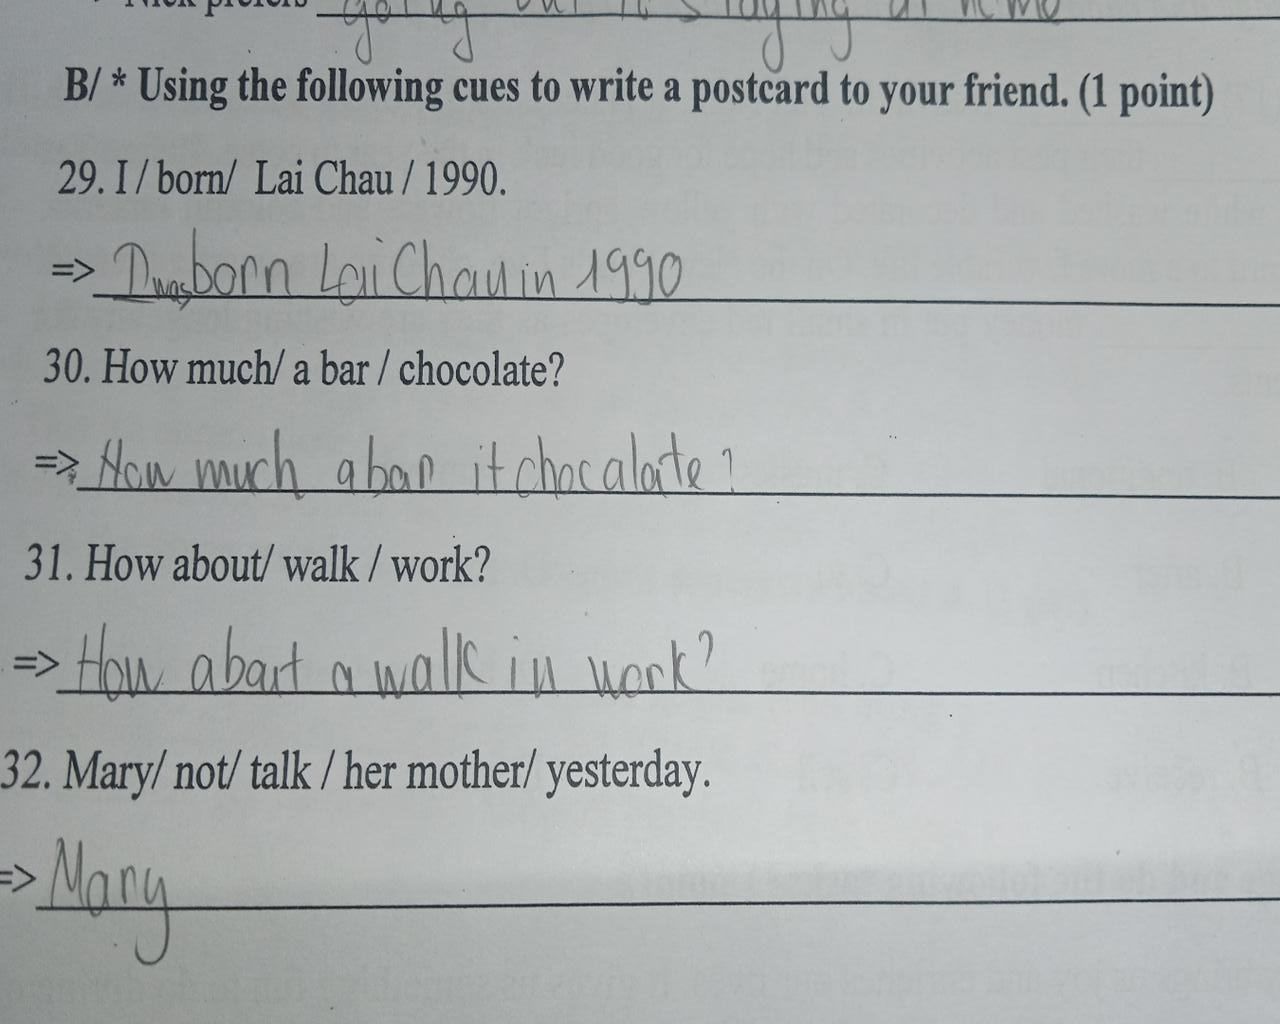 Nick prefers going out to staying at home
B/ * Using the following cues to write a postcard to your friend. (1 point)
29. I / born/ Lai Chau / 1990.
=> I was born Lai Chau in 1990
30. How much/ a bar / chocolate?
=> How much a bar it chocalate?
31. How about/ walk / work?
=> How abaut a walk in work?
32. Mary/ not/ talk / her mother/ yesterday.
=> Mary